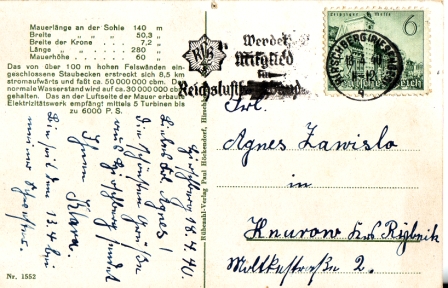 Mauerlänge an der Sohle 140 m
Breite „ „ „ 50,3 „
Breite der Krone . . . 7,2 „
Länge „ „ . . . 280 „
Mauerhöhe . . . . . 60 „
Das von über 100 m hohen Felswänden ein-
geschlossene Staubecken erstreckt sich 8,5 km
stromaufwärts und faßt ca. 50 000 000 cbm. Der
normale Wasserstand wird auf ca. 30 000 000 cbm
gehalten. Das an der Luftseite der Mauer erbaute
Elektrizitätswerk empfängt mittels 5 Turbinen bis
zu 6000 P. S.
Hirschberg 18.4.40.
Liebes Frl. Agnes!
Die schönsten Grüße
aus Hirschberg sendet
Ihnen Klara.
Bin seit dem 13.4. bei
meiner Schwester.
Nr. 1552
Rübezahl-Verlag Paul Höckendorf, Hirschberg
Werdet
Mitglied
im
Reichsluftschutzbund
Leipziger Messe
6
HIRSCHBERG (RIESENGEB)
Frl.
Agnes Zawislo
in
Knurow Krs Rybnik
Moltkestraße 2.